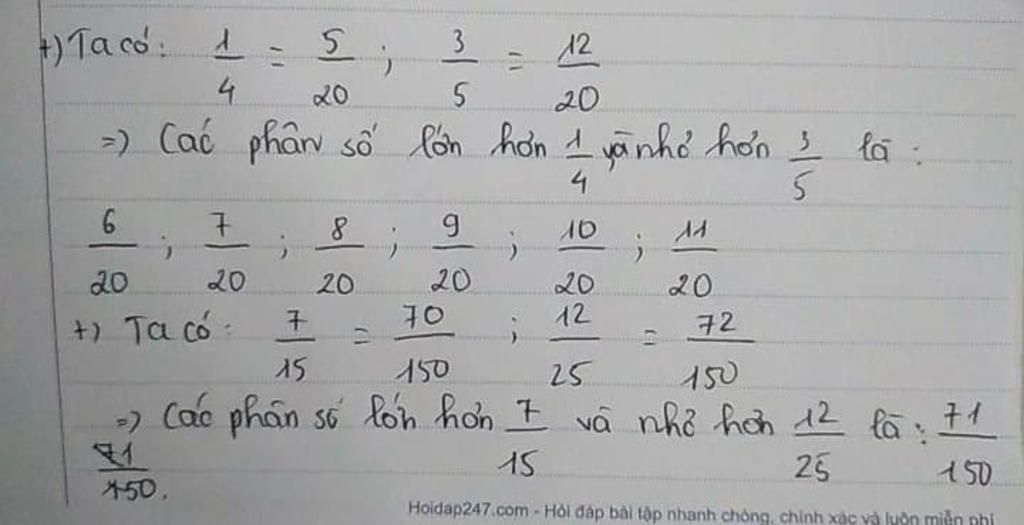 +) Ta có: 1/4 = 5/20 ; 3/5 = 12/20
=) Các phân số lớn hơn 1/4 và nhỏ hơn 3/5 là :
6/20 ; 7/20 ; 8/20 ; 9/20 ; 10/20 ; 11/20
+) Ta có: 7/15 = 70/150 ; 12/25 = 72/150
=) Các phân số lớn hơn 7/15 và nhỏ hơn 12/25 là : 71/150
71/150.
Hoidap247.com - Hỏi đáp bài tập nhanh chóng, chính xác và luôn miễn phí